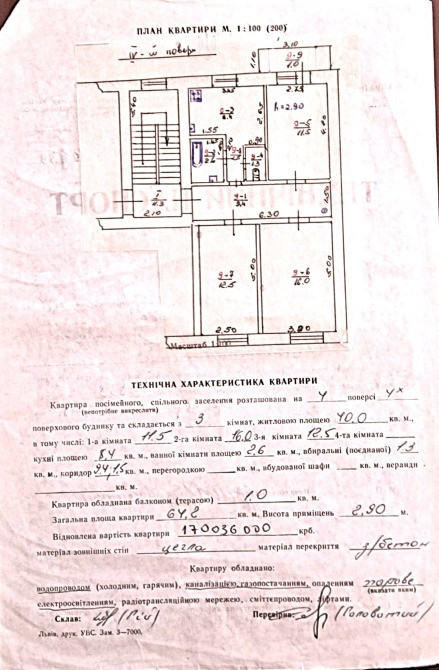 ПЛАН КВАРТИРИ М. 1:100 (200)
IV-й повер
3,10
9-9
1.0
1.10
325
2.75
9-3
8.4
2.65
h=2.90
9-5
11.5
1.55
1.5
I
4.3
2.10
9-1
9.4
6.30
1.50
9-7
12.5
5.00
9-6
16.0
5.00
2,50
3,20
Масштаб 1:100
ТЕХНІЧНА ХАРАКТЕРИСТИКА КВАРТИРИ
Квартира посімейного, спільного заселення розташована на 4 поверсі 4х
(непотрібне викреслити)
поверхового будинку та складається з 3 кімнат, житловою площею 40,0 кв. м.,
в тому числі: 1-а кімната 11.5 2-га кімната 16.0 3-я кімната 12.5 4-та кімната
кухні площею 8,4 кв. м., ванної кімнати площею 2.6 кв. м., вбиральні (поєднаної) 1.3
кв. м., коридор 9.4, 1.5 кв. м., перегородкою кв. м., вбудованої шафи кв. м., веранди
кв. м.
Квартира обладнана балконом (терасою) 1.0 кв. м.
Загальна площа квартири кв. м. Висота приміщень 2,90 м.
Відновлена вартість квартири 170036000 крб.
матеріал зовнішніх стін цегла матеріал перекриття з/бетон
Квартиру обладнано:
водопроводом (холодним, гарячим), каналізацією, газопостачанням, опаленням парове
(вказати яким)
електроосвітленням, радіотрансляційною мережею, сміттєпроводом, ліфтами.
Склав: Перевірив:
Львів, друк. УВС. Зам. 3—7000.